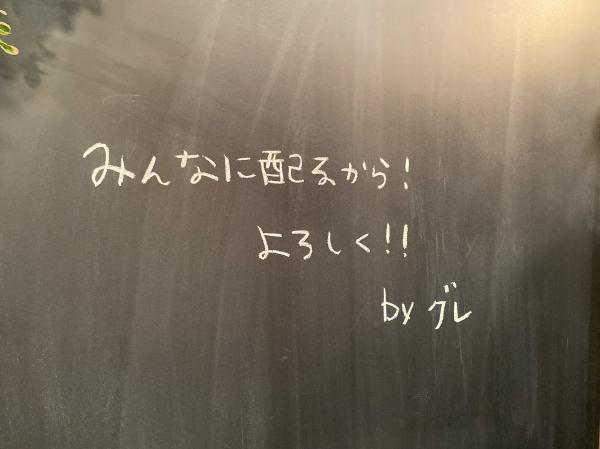 みんなに配るから!
よろしく!!
by グレ